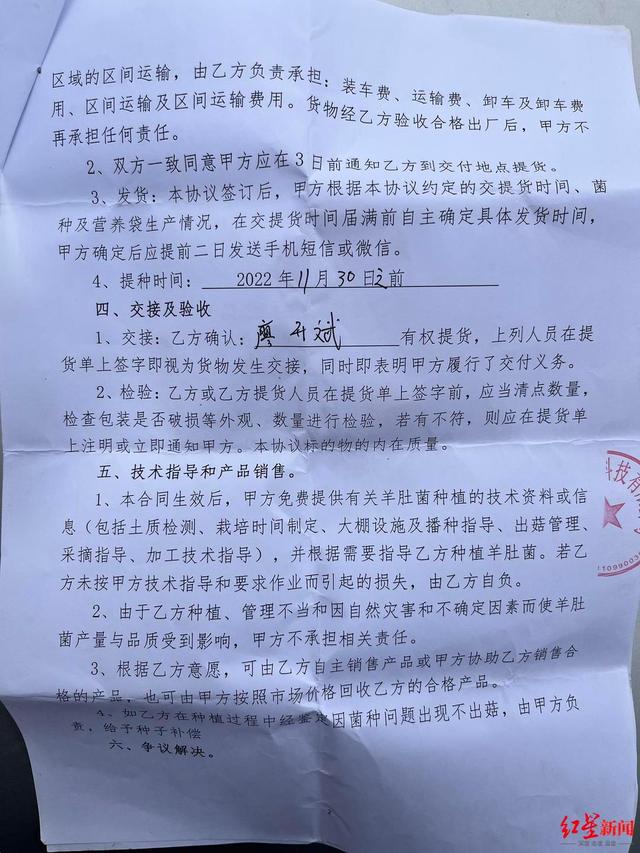 区域的区间运输，由乙方负责承担：装车费、运输费、卸车及卸车费
用、区间运输及区间运输费用。货物经乙方验收合格出厂后，甲方不
再承担任何责任。
2、双方一致同意甲方应在 3 日前通知乙方到交付地点提货。
3、发货：本协议签订后，甲方根据本协议约定的交提货时间、菌
种及营养袋生产情况，在交提货时间届满前自主确定具体发货时间，
甲方确定后应提前二日发送手机短信或微信。
4、提种时间： 2022 年 11 月 30 日之前
四、交接及验收
1、交接：乙方确认：廖开斌 有权提货，上列人员在提
货单上签字即视为货物发生交接，同时即表明甲方履行了交付义务。
2、检验：乙方或乙方提货人员在提货单上签字前，应当清点数量，
检查包装是否破损等外观、数量进行检验，若有不符，则应在提货单
上注明或立即通知甲方。本协议标的物的内在质量。
五、技术指导和产品销售。
1、本合同生效后，甲方免费提供有关羊肚菌种植的技术资料或信
息（包括土质检测、栽培时间制定、大棚设施及播种指导、出菇管理、
采摘指导、加工技术指导），并根据需要指导乙方种植羊肚菌。若乙
方未按甲方技术指导和要求作业而引起的损失，由乙方自负。
2、由于乙方种植、管理不当和因自然灾害和不确定因素而使羊肚
菌产量与品质受到影响，甲方不承担相关责任。
3、根据乙方意愿，可由乙方自主销售产品或甲方协助乙方销售合
格的产品，也可由甲方按照市场价格回收乙方的合格产品。
4、如乙方在种植过程中经鉴定因菌种问题出现不出菇，由甲方负
责，给予种子补偿
六、争议解决。
科技有
红星新闻